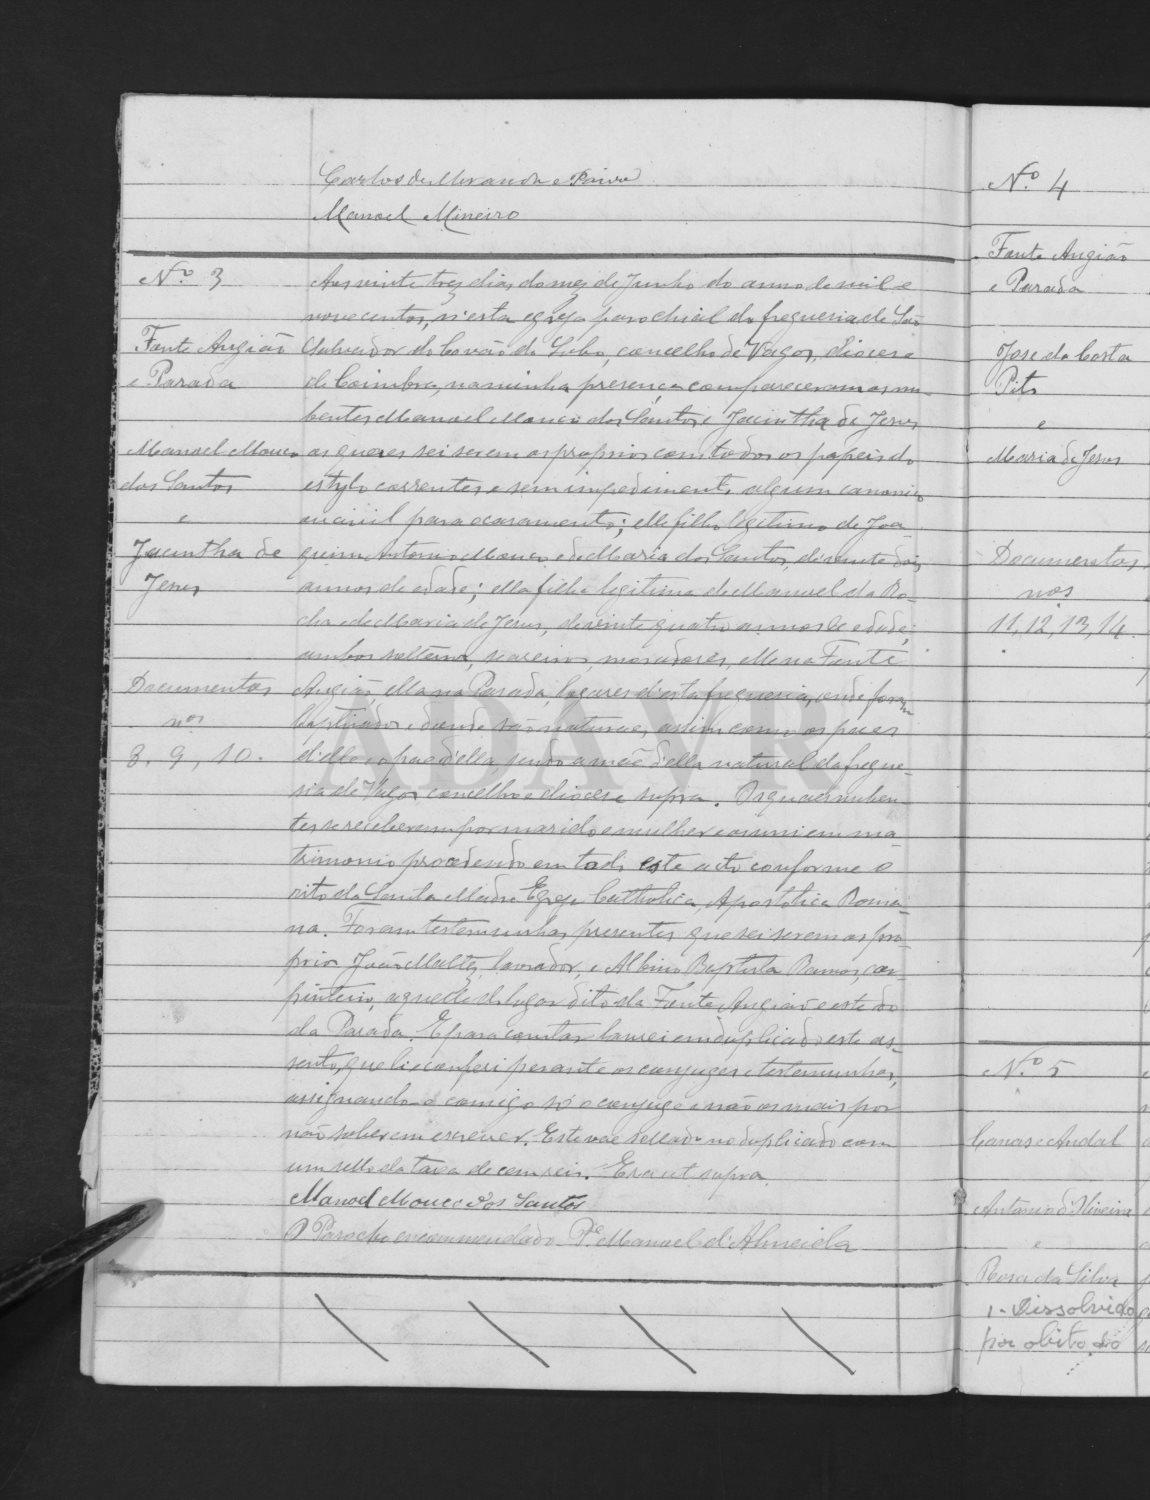 Carlos de Miranda e Paiva
Manoel Mineiro
N.º 3
Fonte Angião
e Parada
Manoel Mouco
dos Santos
e
Jacintha de
Jesus
Documentos
nos
8, 9, 10.
Aos vinte tres dias do mez de Junho do anno de mil e
novecentos, n'esta egreja parochial da freguesia de São
Salvador do Covão do Lobo, concelho de Vagos, diocese
de Coimbra, na minha presença compareceram os nu-
bentes Manoel Mouco dos Santos e Jacintha de Jesus
os quaes sei serem os proprios com todos os papeis do
estylo correntes e sem impedimento algum canonico
ou civil para o casamento; elle filho legitimo de Joa-
quim Antonio Mouco e de Maria dos Santos, de vinte dois
annos de edade; ella filha legitima de Manoel da Ro-
cha e de Maria de Jesus, de vinte quatro annos de edade;
ambos solteiros, seareiros, moradores, elle na Fonte
Angião, ella na Parada, logares d'esta freguesia, onde foram
baptisados e d'onde são naturaes, assim como os paes
d'elle e o pae d'ella sendo a mãe d'ella natural da fregue-
sia de Vagos concelho e diocese supra. Os quaes nuben-
tes se receberam por marido e mulher e os uni em ma-
trimonio procedendo em todo este acto conforme o
rito da Santa Madre Egreja Catholica, Apostolica Roma-
na. Foram testemunhas presentes que sei serem os pro-
prios João Maltez, lavrador, e Albino Baptista Ramos, car-
pinteiro, aquelle do logar dito da Fonte Angião e este do
da Parada. E para constar lavrei em duplicado este as-
sento, que li e conferi perante os conjuges e testemunhas,
assignando-o comigo só o conjuge e não os mais por
não saberem escrever. Este vae sellado no duplicado com
um sello da taxa de cem reis. Era ut supra.
Manoel Mouco dos Santos
O Parocho encommendado P.e Manuel d'Almeida
N.º 4
Fonte Angião
e Parada
Jose da Costa
Pito
e
Maria de Jesus
Documentos
nos
11, 12, 13, 14.
N.º 5
Canas e Andal
Antonio d'Oliveira
e
Rosa da Silva
1 - Dissolvido
por obito do
ADAVR